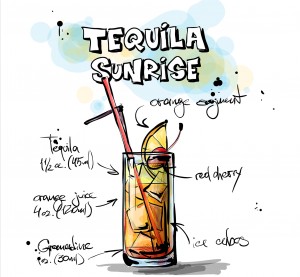 TEQUILA
SUNRISE
orange segment
Tequila
1 1/2 oz. (45ml)
red cherry
orange juice
4 oz. (120ml)
Grenadine
1 oz. (30ml)
ice cubes